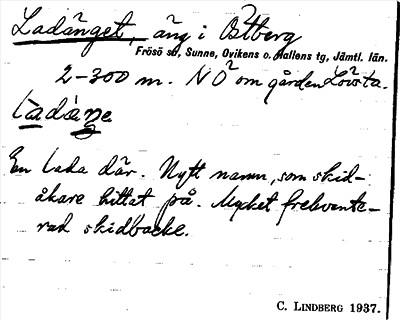 Ladänget, äng i Östberg
Frösö sn, Sunne, Ovikens o. Hallens tg, Jämtl. län.
2-300 m. NO om gården Lövsta.
làdàŋe
En lada där. Nytt namn, som skid-
åkare hittat på. Mycket frekvente-
rad skidbacke.
C. LINDBERG 1937.